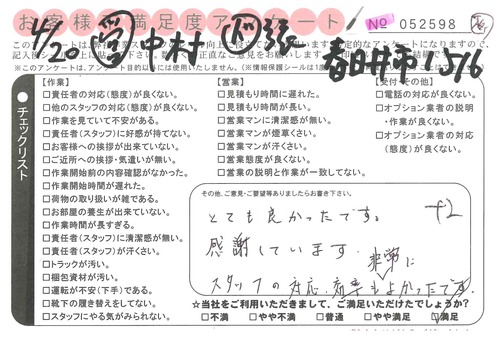 お客様満足度アンケート
No 052598
4/20 中村
春日井市 1516
【作業】
□責任者の対応(態度)が良くない。
□他のスタッフの対応(態度)が良くない。
□作業を見ていて不安がある。
□責任者(スタッフ)に好感が持てない。
□お客様への挨拶が出来ていない。
□ご近所への挨拶・気遣いが無い。
□作業開始前の内容確認がなかった。
□作業開始時間が遅れた。
□荷物の取り扱いが雑である。
□お部屋の養生が出来ていない。
□作業時間が長すぎる。
□責任者(スタッフ)に清潔感が無い。
□責任者(スタッフ)が汗くさい。
□トラックが汚い。
□梱包資材が汚い。
□運転が不安(下手)である。
□靴下の履き替えをしてない。
□スタッフにやる気がみられない。
チェックリスト
【営業】
□見積もり時間に遅れた。
□見積もり時間が長い。
□営業マンに清潔感が無い。
□営業マンが煙草くさい。
□営業マンが汗くさい。
□営業態度が良くない。
□営業の説明と作業が一致してない。
【受付・その他】
□電話の対応が良くない。
□オプション業者の説明
・作業が良くない。
□オプション業者の対応
(態度)が良くない。
その他、ご意見・ご要望等ありましたらお書き下さい。
とても良かったです。
+2
感謝しています。
非常に
スタッフの対応、 もよかったです。
☆当社をご利用いただきまして、ご満足いただけたでしょうか?
□不満 □やや不満 □普通 □やや満足 □満足